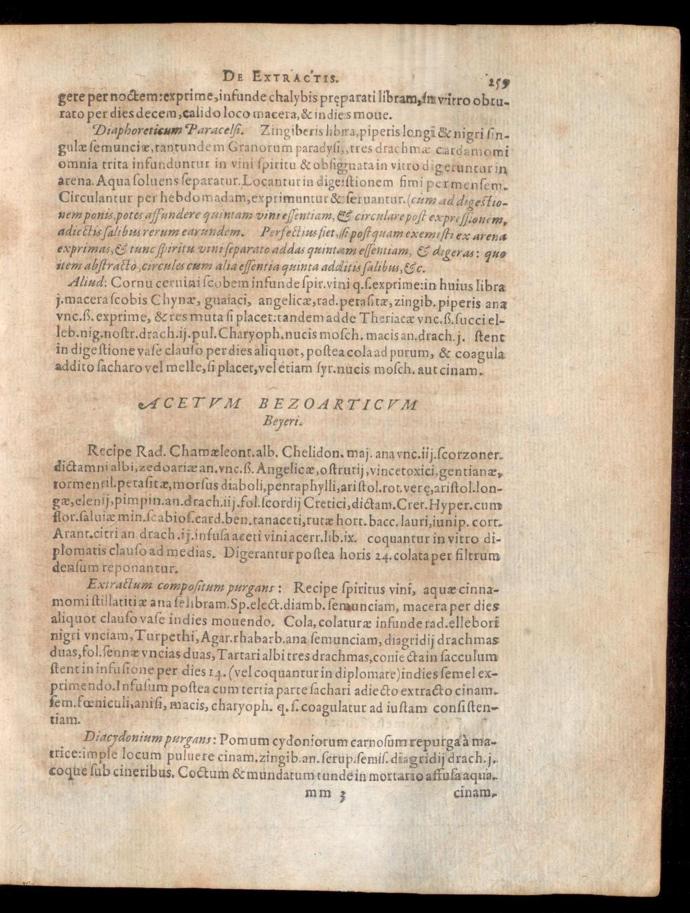 DE EXTRACTIS. 259
gere per noctem: exprime, infunde chalybis pręparati libram, in vitro obtu-
rato per dies decem, calido loco macera, & indies moue.
Diaphoreticum Paracelsi. Zingiberis libra, piperis longi & nigri sin-
gulæ semunciæ, tantundem Granorum paradysi, tres drachmæ cardamomi
omnia trita infunduntur in vini spiritu & obsignata in vitro digeruntur in
arena. Aqua soluens separatur. Locantur in digestionem fimi per mensem.
Circulantur per hebdomadam, exprimuntur & seruantur. (cum ad digestio-
nem ponis, potes affundere quintam vini essentiam, & circulare post expressionem,
adiectis salibus rerum earundem. Perfectius fiet, si postquam exemisti ex arena
exprimas, & tunc spiritu vini separato addas quintam essentiam, & digeras: quo
item abstracto, circules cum alia essentia quinta additis salibus, &c.
Aliud: Cornu ceruini scobem infunde spir. vini q. s. exprime: in huius libra
j. macera scobis Chynæ, guaiaci, angelicæ, rad. petasitæ, zingib. piperis ana
vnc. ß. exprime, & res muta si placet: tandem adde Theriacæ vnc. ß. succi el-
leb. nig. nostr. drach. ij. pul. Charyoph. nucis mosch. macis an. drach. j. stent
in digestione vase clauso per dies aliquot, postea cola ad purum, & coagula
addito sacharo vel melle, si placet, vel etiam syr. nucis mosch. aut cinam.
ACETVM BEZOARTICVM
Beyeri.
Recipe Rad. Chamæleont. alb. Chelidon. maj. ana vnc. iij. scorzoner.
dictamni albi, zedoariæ an. vnc. ß. Angelicæ, ostrutij, vincetoxici, gentianæ,
tormentil. petasitæ, morsus diaboli, pentaphylli, aristol. rot. verę, aristol. lon-
gæ, elenij, pimpin. an. drach. iij. fol. scordij Cretici, dictam. Cret. Hyper. cum
flor. saluiæ min. scabios. card. ben. tanaceti, rutæ hort. bacc. lauri, iunip. cort.
Arant. citri an drach. ij. infusa aceti vini acerr. lib. ix. coquantur in vitro di-
plomatis clauso ad medias. Digerantur postea horis 24. colata per filtrum
densum reponantur.
Extractum compositum purgans: Recipe spiritus vini, aquæ cinna-
momi stillatitiæ ana selibram. Sp. elect. diamb. semunciam, macera per dies
aliquot clauso vase indies mouendo. Cola, colaturæ infunde rad. ellebori
nigri vnciam, Turpethi, Agar. rhabarb. ana semunciam, diagridij drachmas
duas, fol. sennæ vncias duas, Tartari albi tres drachmas, coniecta in sacculum
stent in infusione per dies 14. (vel coquantur in diplomate) indies semel ex-
primendo. Infusum postea cum tertia parte sachari adiecto extracto cinam.
sem. fœniculi, anisi, macis, charyoph. q. s. coagulatur ad iustam consisten-
tiam.
Diacydonium purgans: Pomum cydoniorum carnosum repurga à ma-
trice: imple locum puluere cinam. zingib. an. scrup. semis. diagridij drach. j.
coque sub cineribus. Coctum & mundatum tunde in mortario affusa aqua
mm 3 cinam.